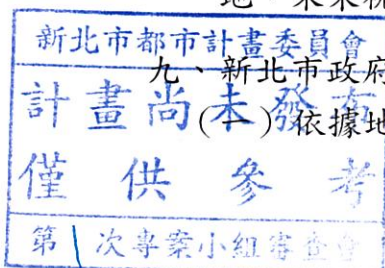 地。未來
新北市都市計畫委員會
九、新北市政府
計畫尚未發布
(一)依據地
僅供參考
第1次專案小組審查會